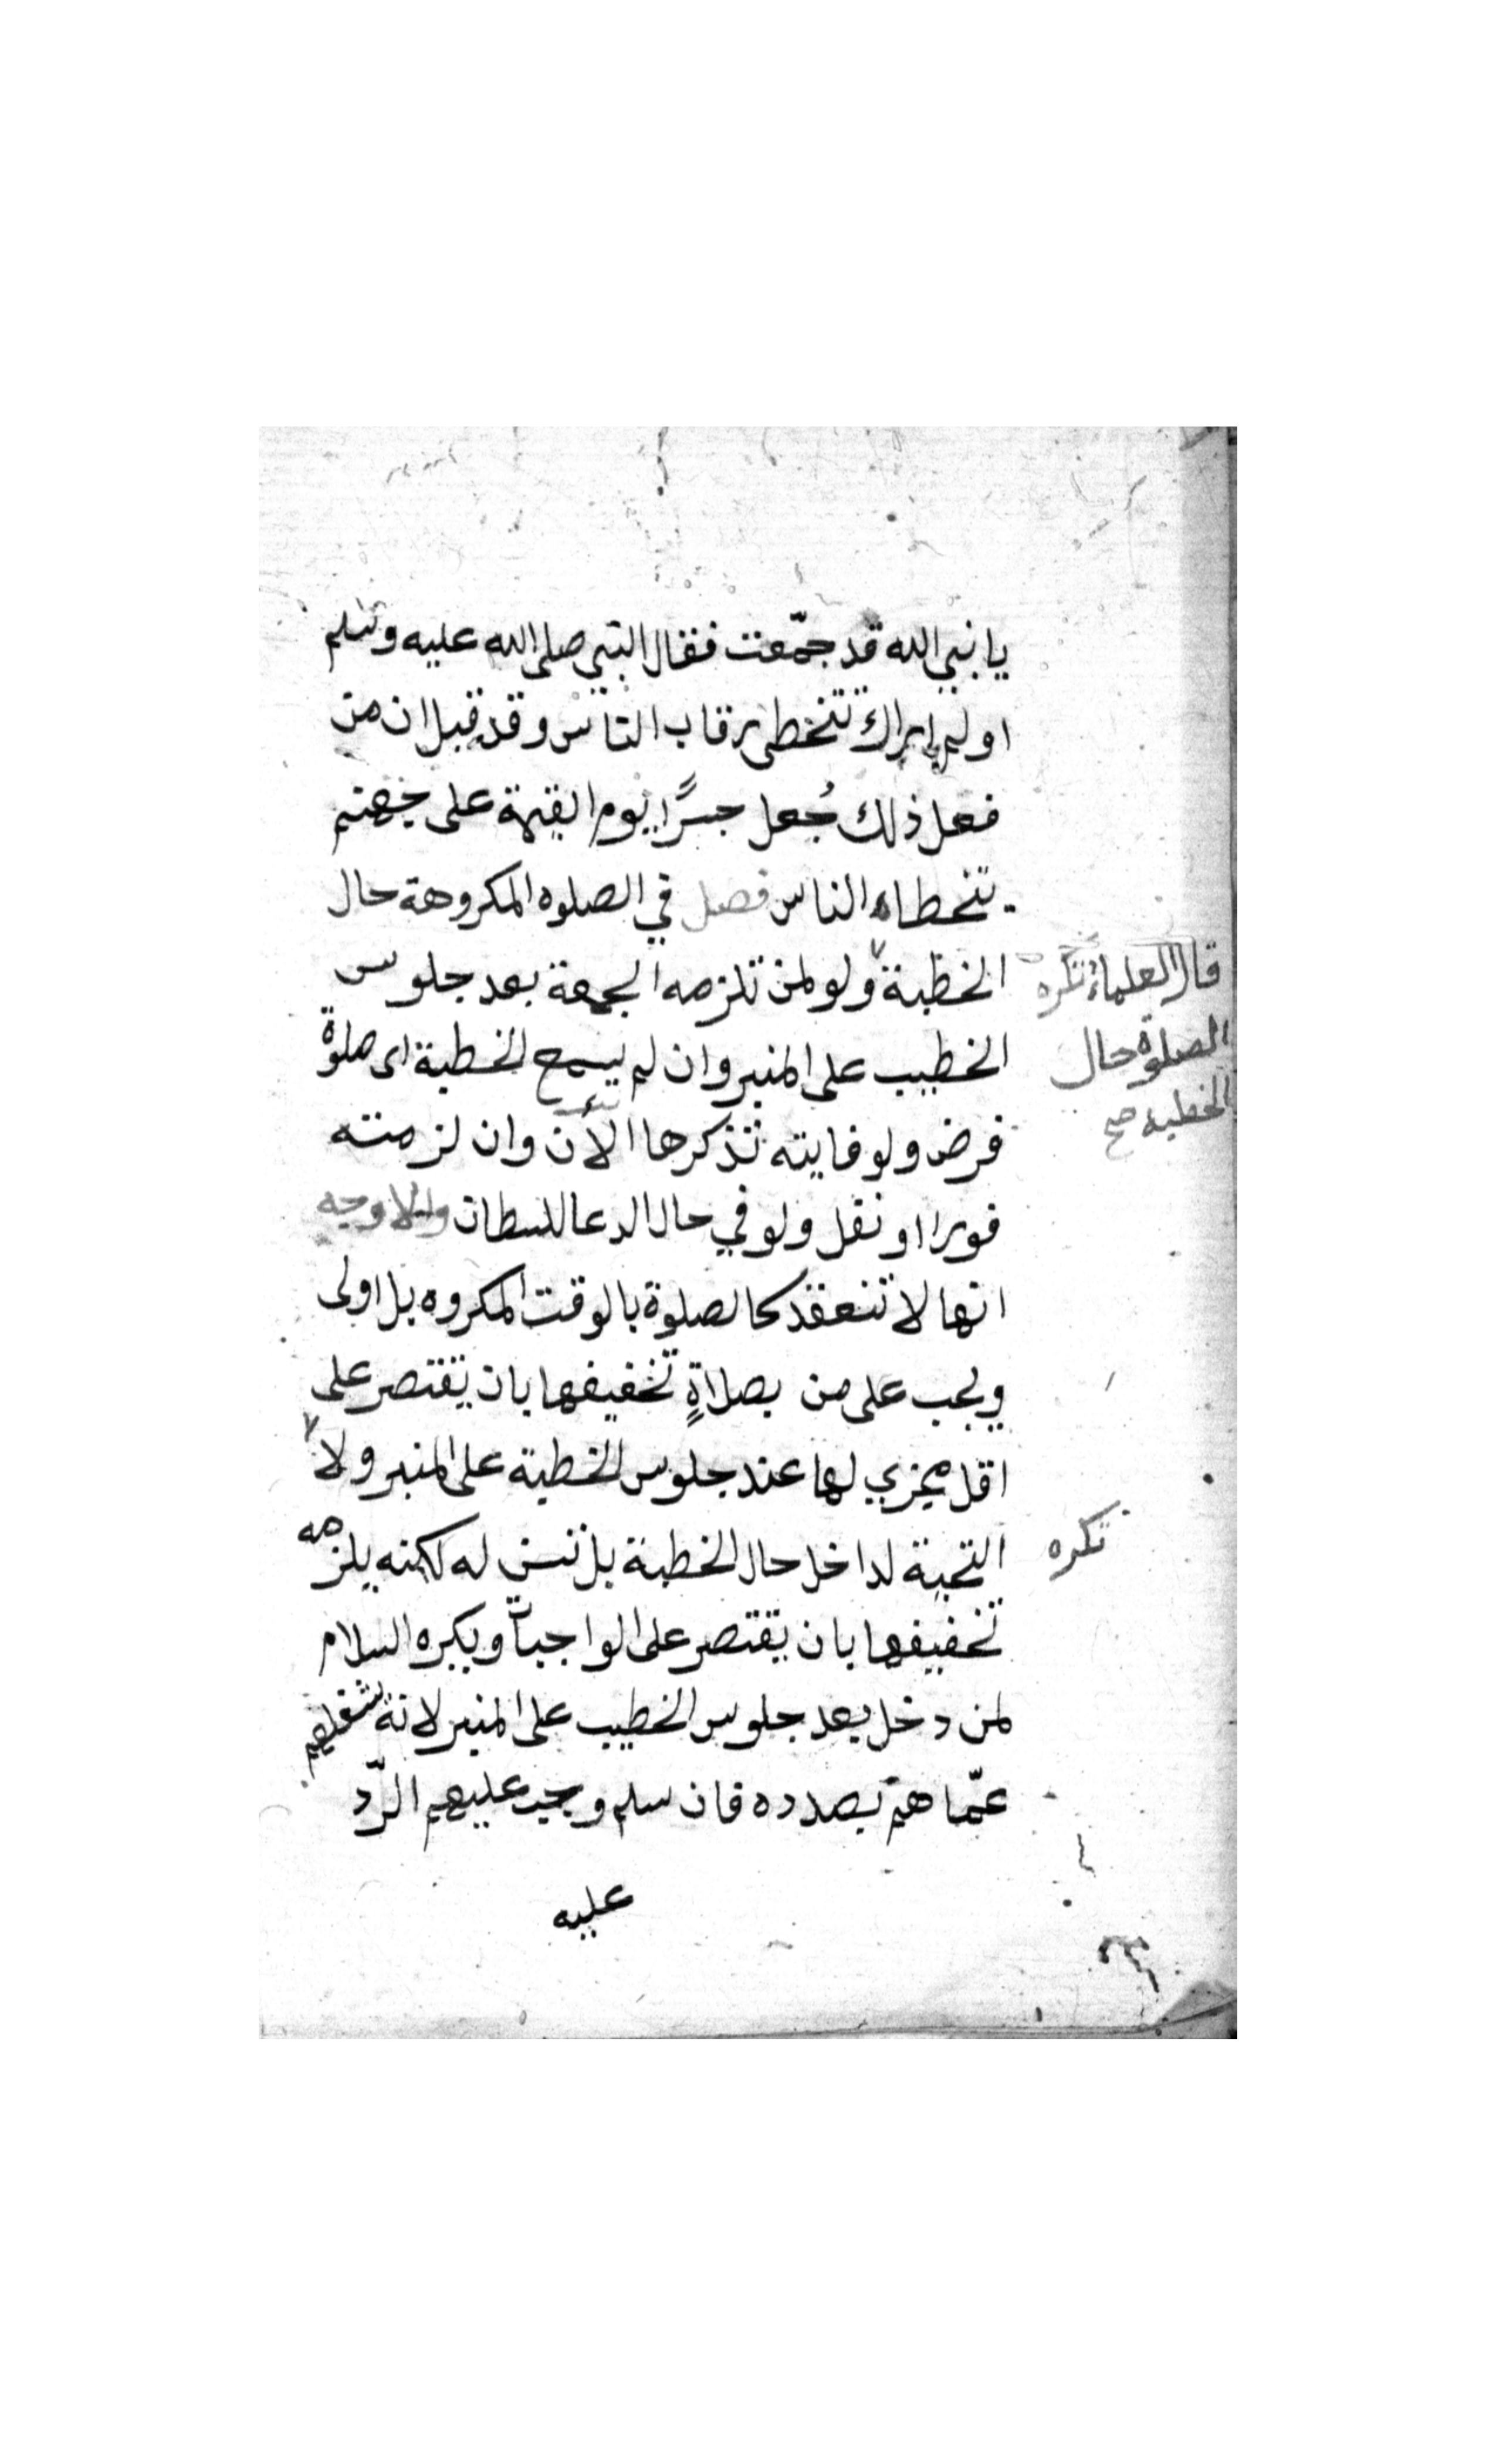 يا نبي الله قد جمّعت فقال النبي صلى الله عليه وسلم
اولم اراك تتخطى رقاب الناس وقد قيل ان من
فعل ذلك جُعل جسرًا يوم القيمة على جهنم
تتخطاه الناس فصل في الصلوه المكروهة حال
الخطبة ولو لمن تلزمه الجمعة بعد جلوس
قال العلماء تكره
الصلوة حال
الخطبه صح
الخطيب على المنبر وان لم يسمع الخطبة اى صلوة
فرض ولو فايته تذكرها الأن وان لزمته
فورا او نفل ولو في حال الدعا للسطان والاوجه
انها لا تنعقد كالصلوة بالوقت المكروه بل اولى
ويجب على من بصلاةٍ تخفيفها بان يقتصر على
اقل مجزي لها عند جلوس الخطبة على المنبر ولا
تكره
التحية لداخل حال الخطبة بل تسن له لكنه يلزمه
تخفيفها بان يقتصر على الواجبات ويكره السلام
لمن دخل بعد جلوس الخطيب على المنبر لانه
عمّا هم بصدده فان سلم وجب عليهم الرّد
عليه